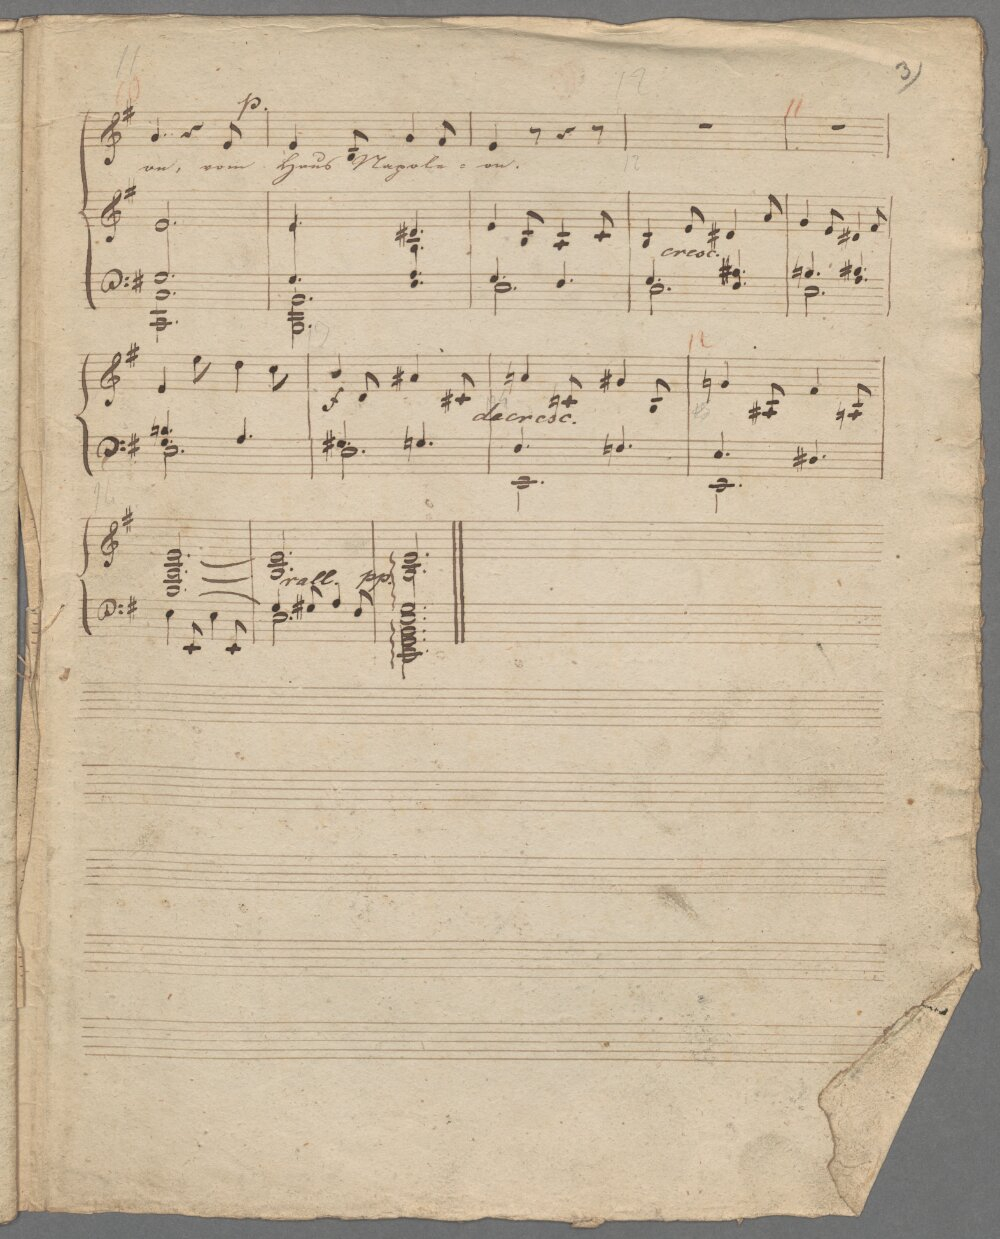 3)
11 12
p.
11
on, vom Haus Napole = on.
12
cresc.
12
f decresc.
rall. pp.